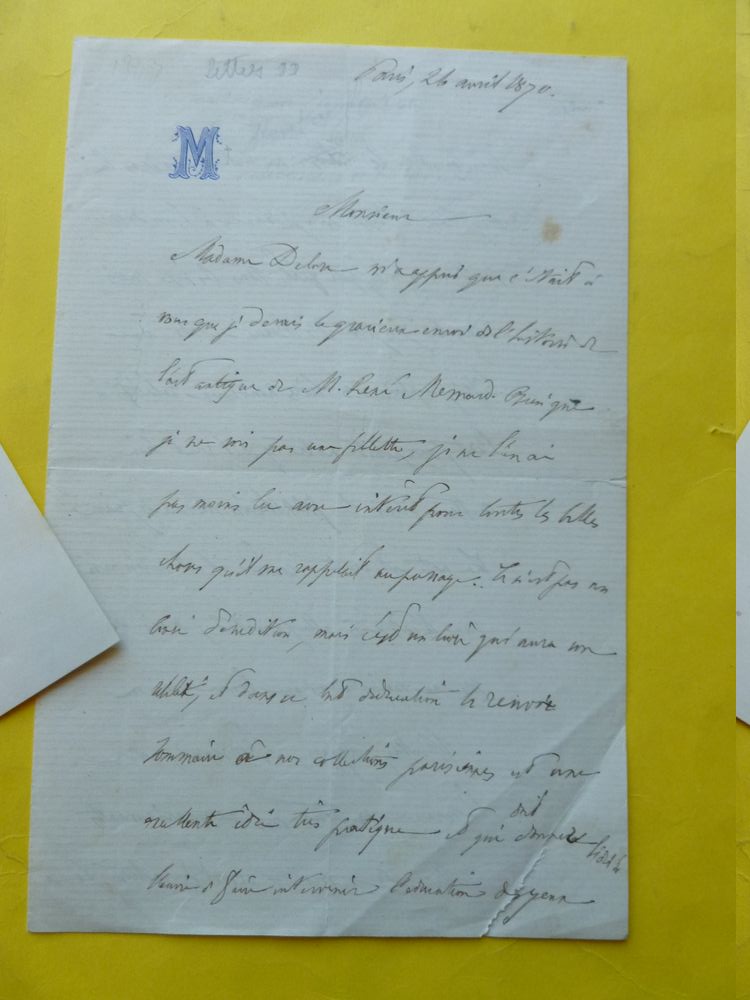 letters 99
Paris, 26 avril 1870.
M
Monsieur
Madame Delore m'a appris que c'était à
vous que je devais le gracieux envoi de l'histoire de
l'art antique de M. René Menard. Quoique
je ne sois pas une fillette, je ne l'en ai
pas moins lu avec intérêt pour toutes les belles
choses qu'il me rappelait au passage. Ce n'est pas un
livre d'érudition, mais c'est un livre qui aura son
utilité, et dans ce but d'éducation le renvoi
sommaire à nos collections parisiennes est une
excellente idée très pratique et qui doit donner
l'envie de faire intervenir l'éducation des yeux